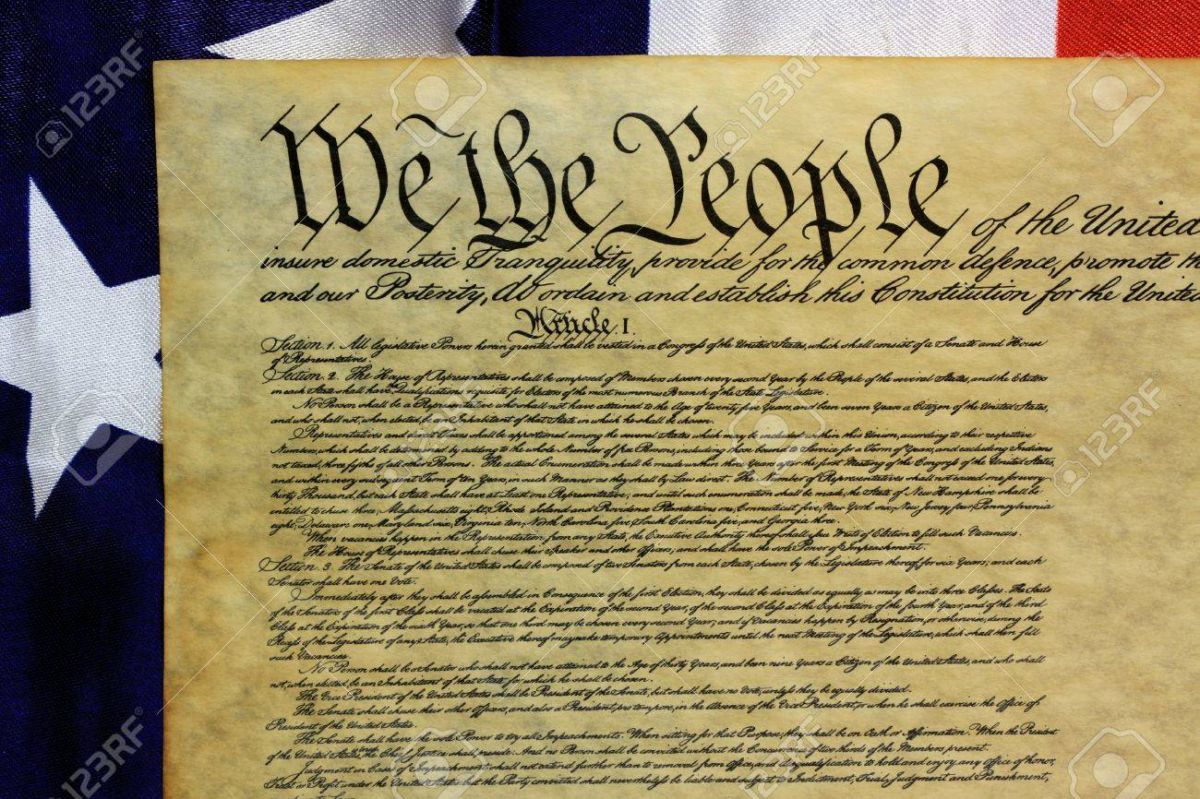 We the People of the United
insure domestic Tranquility, provide for the common defence, promote th
and our Posterity, do ordain and establish this Constitution for the Unite
Article. I.
Section 1. All legislative Powers herein granted shall be vested in a Congress of the United States, which shall consist of a Senate and House
of Representatives.
Section 2. The House of Representatives shall be composed of Members chosen every second Year by the People of the several States, and the Electors
in each State shall have Qualifications requisite for Electors of the most numerous Branch of the State Legislature.
No Person shall be a Representative who shall not have attained to the Age of twenty five Years, and been seven Years a Citizen of the United States,
and who shall not, when elected, be an Inhabitant of that State in which he shall be chosen.
Representatives and direct Taxes shall be apportioned among the several States which may be included within this Union, according to their respective
Numbers, which shall be determined by adding to the whole Number of free Persons, including those bound to Service for a Term of Years, and excluding Indians
not taxed, three fifths of all other Persons. The actual Enumeration shall be made within three Years after the first Meeting of the Congress of the United States,
and within every subsequent Term of ten Years, in such Manner as they shall by Law direct. The Number of Representatives shall not exceed one for every
thirty Thousand, but each State shall have at Least one Representative; and until such enumeration shall be made, the State of New Hampshire shall be
entitled to chuse three, Massachusetts eight, Rhode Island and Providence Plantations one, Connecticut five, New York six, New Jersey four, Pennsylvania
eight, Delaware one, Maryland six, Virginia ten, North Carolina five, South Carolina five, and Georgia three.
When vacancies happen in the Representation from any State, the Executive Authority thereof shall issue Writs of Election to fill such Vacancies.
The House of Representatives shall chuse their Speaker and other Officers; and shall have the sole Power of Impeachment.
Section. 3. The Senate of the United States shall be composed of two Senators from each State, chosen by the Legislature thereof, for six Years; and each
Senator shall have one Vote.
Immediately after they shall be assembled in Consequence of the first Election, they shall be divided as equally as may be into three Classes. The Seats
of the Senators of the first Class shall be vacated at the Expiration of the second Year, of the second Class at the Expiration of the fourth Year, and of the third
Class at the Expiration of the sixth Year, so that one third may be chosen every second Year; and if Vacancies happen by Resignation, or otherwise, during the
Recess of the Legislature of any State, the Executive thereof may make temporary Appointments until the next Meeting of the Legislature, which shall then fill
such Vacancies.
No Person shall be a Senator who shall not have attained to the Age of thirty Years, and been nine Years a Citizen of the United States, and who shall
not, when elected, be an Inhabitant of that State for which he shall be chosen.
The Vice President of the United States shall be President of the Senate, but shall have no Vote, unless they be equally divided.
The Senate shall chuse their other Officers, and also a President pro tempore, in the Absence of the Vice President, or when he shall exercise the Office of
President of the United States.
The Senate shall have the sole Power to try all Impeachments. When sitting for that Purpose, they shall be on Oath or Affirmation. When the President
of the United States, the Chief Justice shall preside: And no Person shall be convicted without the Concurrence of two thirds of the Members present.
Judgment in Cases of Impeachment shall not extend further than to removal from Office, and disqualification to hold and enjoy any Office of honor,
Trust or Profit under the United States: but the Party convicted shall nevertheless be liable and subject to Indictment, Trial, Judgment and Punishment,
123RF